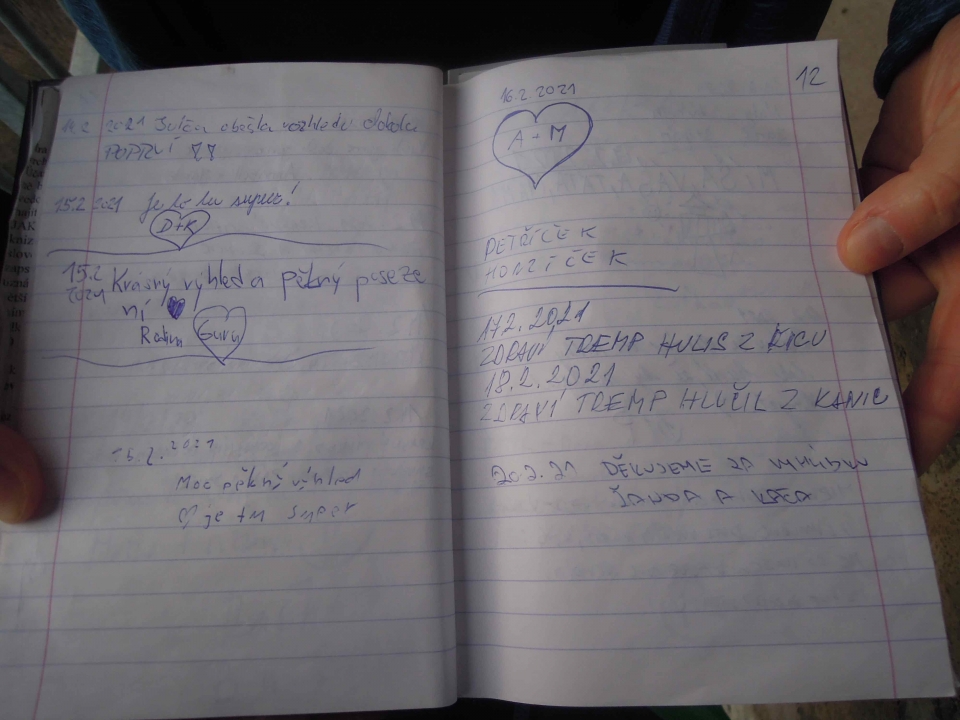 14.2 2021 obešla
POPRVÍ
15.2 2021 Je to tu super!
D+K
15.2 Krásný výhled a pěkný poseze
2021 ní
Guru
15.2.2021
Moc pěkný výhled
je tu super
12
16.2.2021
A+M
PETŘÍČEK
HONZÍČEK
17.2.2021
ZDRAVÍ TREMP Z
18.2.2021
ZDRAVÍ TREMP HLUČIL Z KANIC
20.2.21 DĚKUJEME ZA
A KÁČA